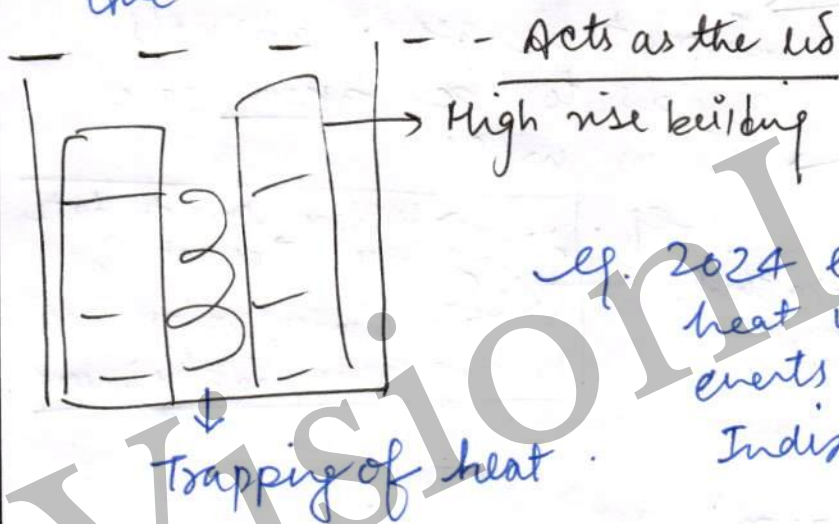 Acts as the lid
High rise building
eg. 2024
heat
events
India
Trapping of heat.
Vision